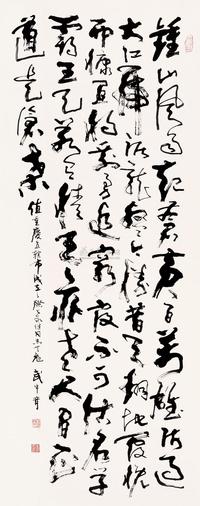 鍾山風雨起蒼黄百萬雄師過
大江虎踞龍盤今勝昔天翻地覆慨
而慷宜將剩勇追窮寇不可沽名學
霸王天若有情天亦老人間正
道是滄桑
值重慶直轄市成立之際 武中奇